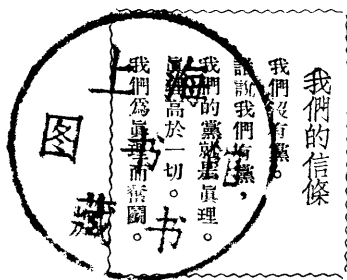 我們的信條
我們沒有黨。
誰說我們有黨，
我們的黨就是眞理。
眞理高於一切。
我們爲眞理而奮鬭。
上海
图书馆
藏书